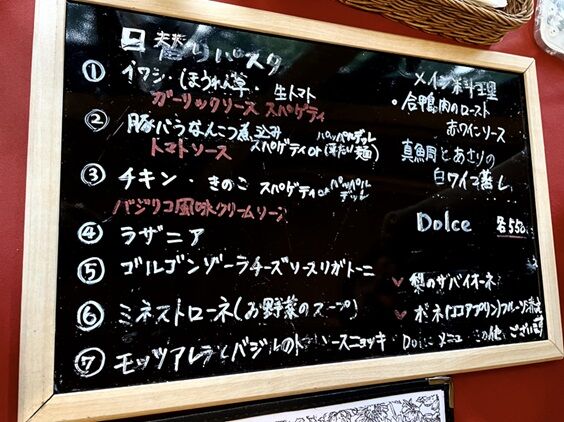 日替りパスタ
① イワシ・ほうれん草・生トマト
ガーリックソース スパゲティ
② 豚バラなんこつ煮込み
トマトソース スパゲティor パッパルデッレ(平たい麺)
③ チキン・きのこ スパゲティor パッパルデッレ
バジリコ風味クリームソース
④ ラザニア
⑤ ゴルゴンゾーラチーズソースリガトーニ
⑥ ミネストローネ(お野菜のスープ)
⑦ モッツアレラとバジルのトマトソースニョッキ
メイン料理
・合鴨肉のロースト
赤ワインソース
真鯛とあさりの
白ワイン蒸し
Dolce 各550
梨のザバイオーネ
ボネ(ココアプリン)フルーツ添え
Dolceメニュー その他ございます